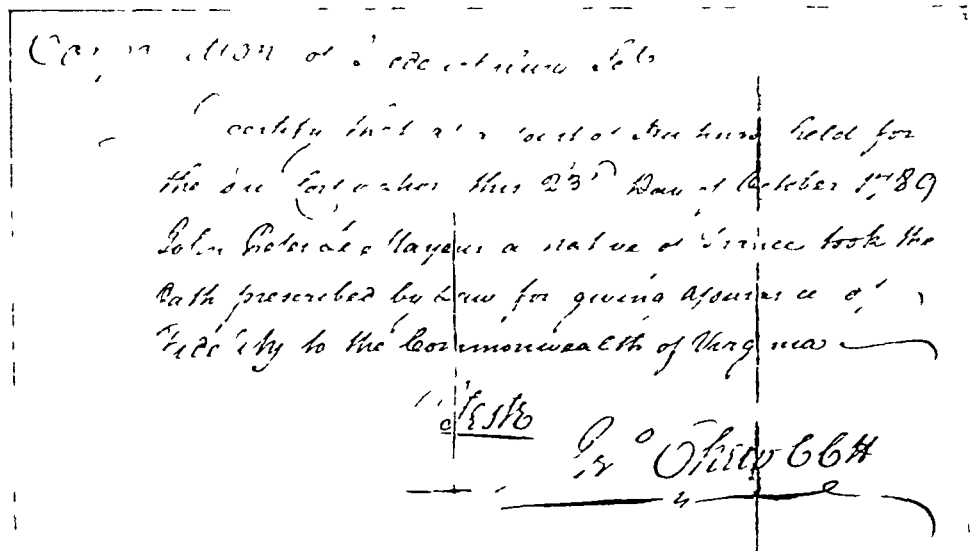 Corporation of Fredericksburg Sct
I certify that at a Court of Hustings held for
the said Corporation this 23d Day of October 1789
John Peter Le Mayeur a native of France took the
Oath prescribed by Law for giving assurance of
Fidelity to the Commonwealth of Virginia
Teste
Jno Chew CCH